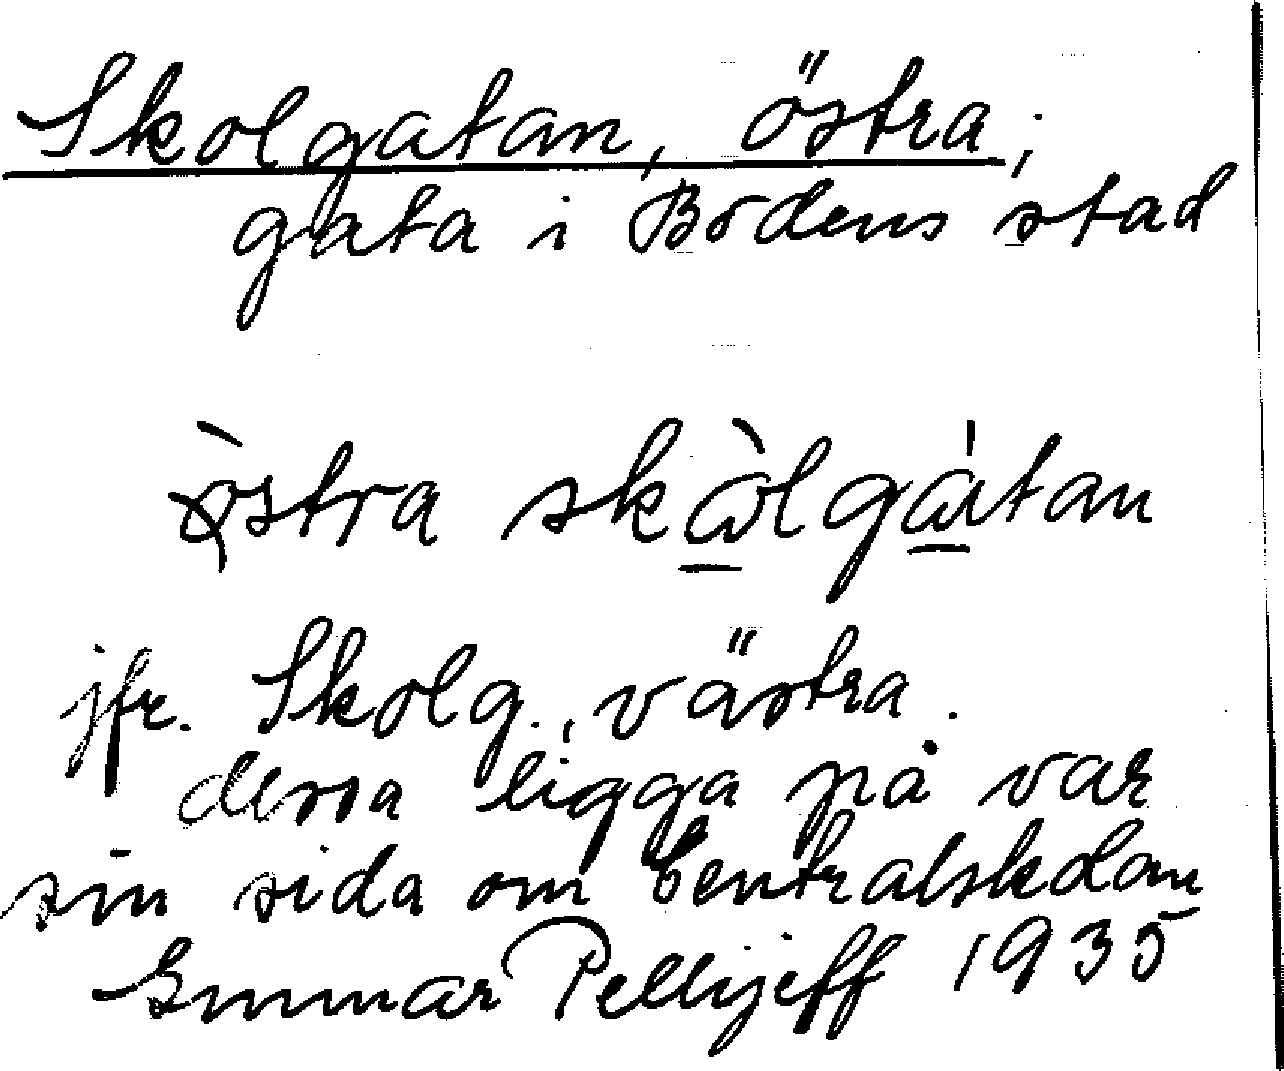 Skolgatan, östra;
gata i Bodens stad
östra skòlgátan
jfr. Skolg., västra.
dessa ligga på var
sin sida om Centralskolan
Gunnar Pellijeff 1935